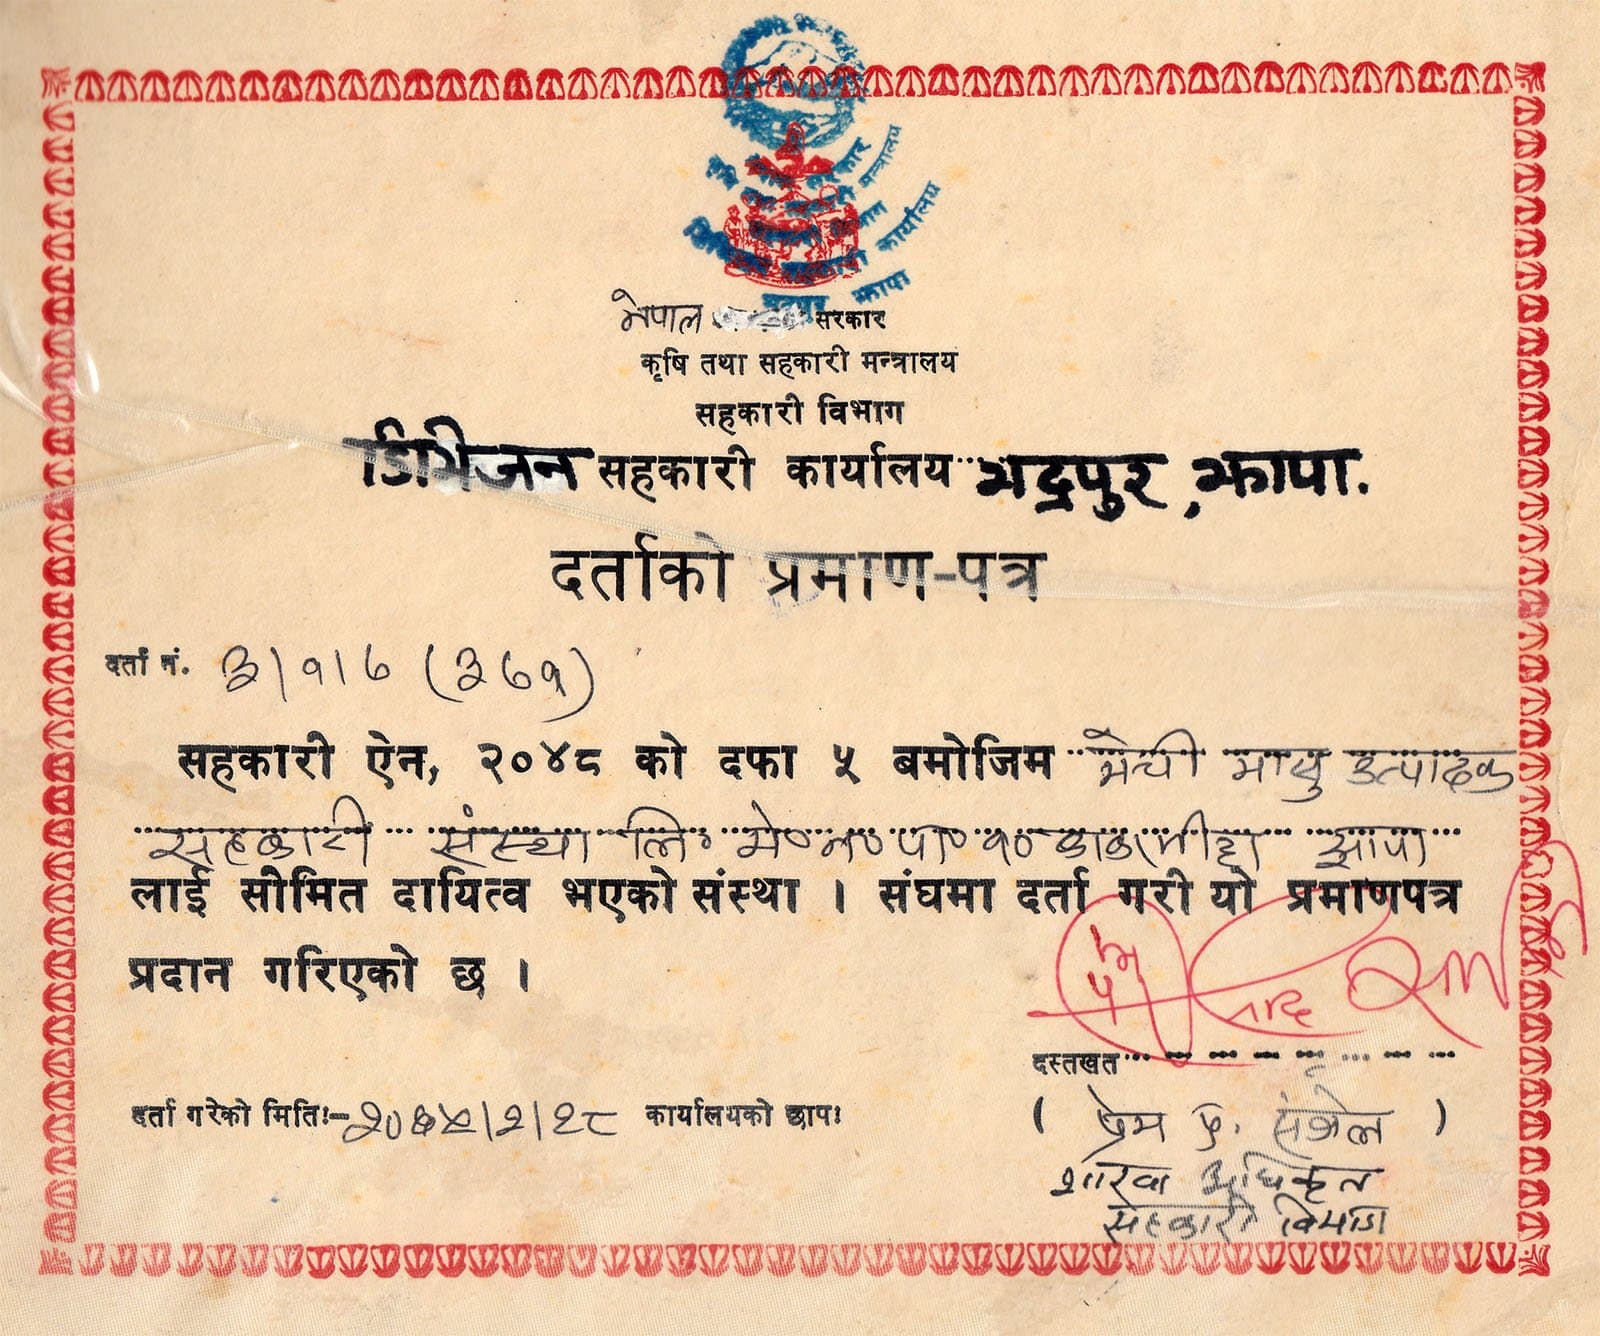 नेपाल सरकार
कृषि तथा सहकारी मन्त्रालय
सहकारी विभाग
डिभिजन सहकारी कार्यालय भद्रपुर, झापा.
दर्ताको प्रमाण-पत्र
दर्ता नं. ३/१/७ (३७१)
सहकारी ऐन, २०४८ को दफा ५ बमोजिम मेची मासु उत्पादक
सहकारी संस्था लि॰ मे॰न॰पा॰ १० काकरभीट्टा झापा
लाई सीमित दायित्व भएको संस्था । संघमा दर्ता गरी यो प्रमाणपत्र
प्रदान गरिएको छ ।
दस्तखत
दर्ता गरेको मितिः- कार्यालयको छापः
( प्रेम प्र. संजेल )
शाखा अधिकृत
सहकारी विभाग